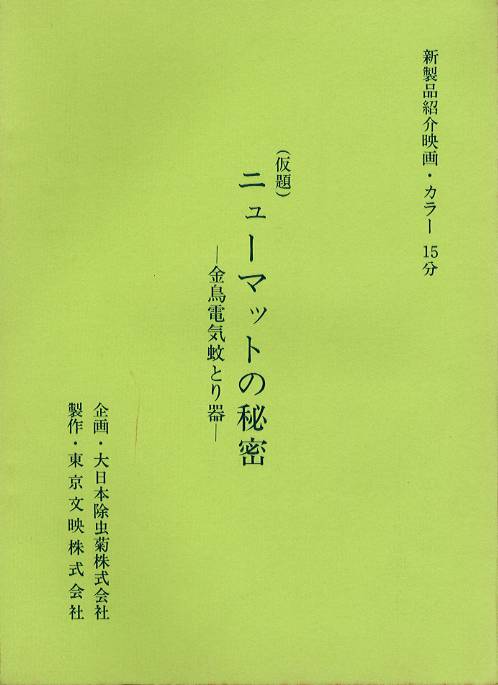 新製品紹介映画・カラー 15分
(仮題)
ニューマットの秘密
―金鳥電気蚊とり器―
企画・大日本除虫菊株式会社
製作・東京文映株式会社